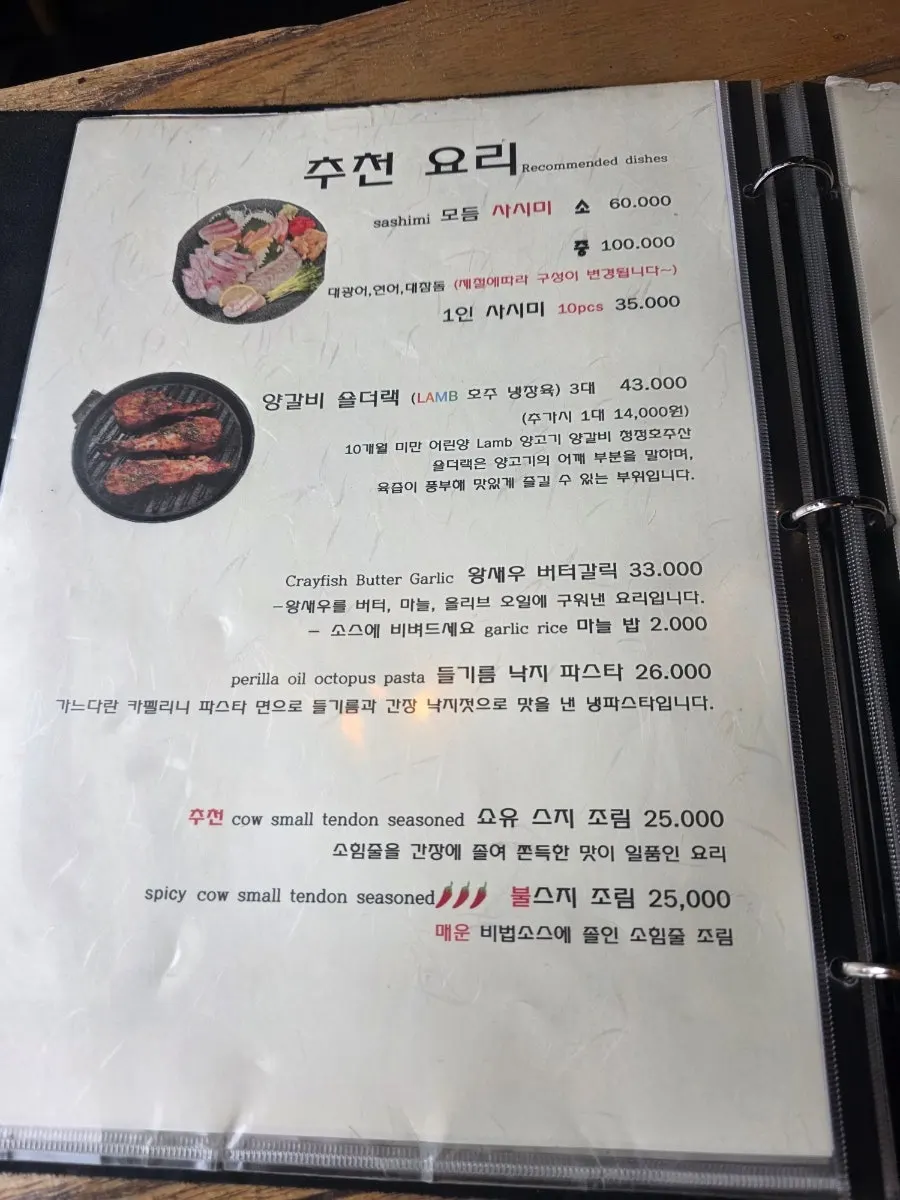 추천 요리 Recommended dishes
sashimi 모듬 사시미 소 60.000
중 100.000
대광어,연어,대참돔 (계절에따라 구성이 변경됩니다~)
1인 사시미 10pcs 35.000
양갈비 숄더랙 (LAMB 호주 냉장육) 3대 43.000
(추가시 1대 14,000원)
10개월 미만 어린양 Lamb 양고기 양갈비 청정호주산
숄더랙은 양고기의 어깨 부분을 말하며,
육즙이 풍부해 맛있게 즐길 수 있는 부위입니다.
Crayfish Butter Garlic 왕새우 버터갈릭 33.000
-왕새우를 버터, 마늘, 올리브 오일에 구워낸 요리입니다.
- 소스에 비벼드세요 garlic rice 마늘 밥 2.000
perilla oil octopus pasta 들기름 낙지 파스타 26.000
가느다란 카펠리니 파스타 면으로 들기름과 간장 낙지젓으로 맛을 낸 냉파스타입니다.
추천 cow small tendon seasoned 쇼유 스지 조림 25.000
소힘줄을 간장에 졸여 쫀득한 맛이 일품인 요리
spicy cow small tendon seasoned🌶🌶🌶 불스지 조림 25,000
매운 비법소스에 졸인 소힘줄 조림